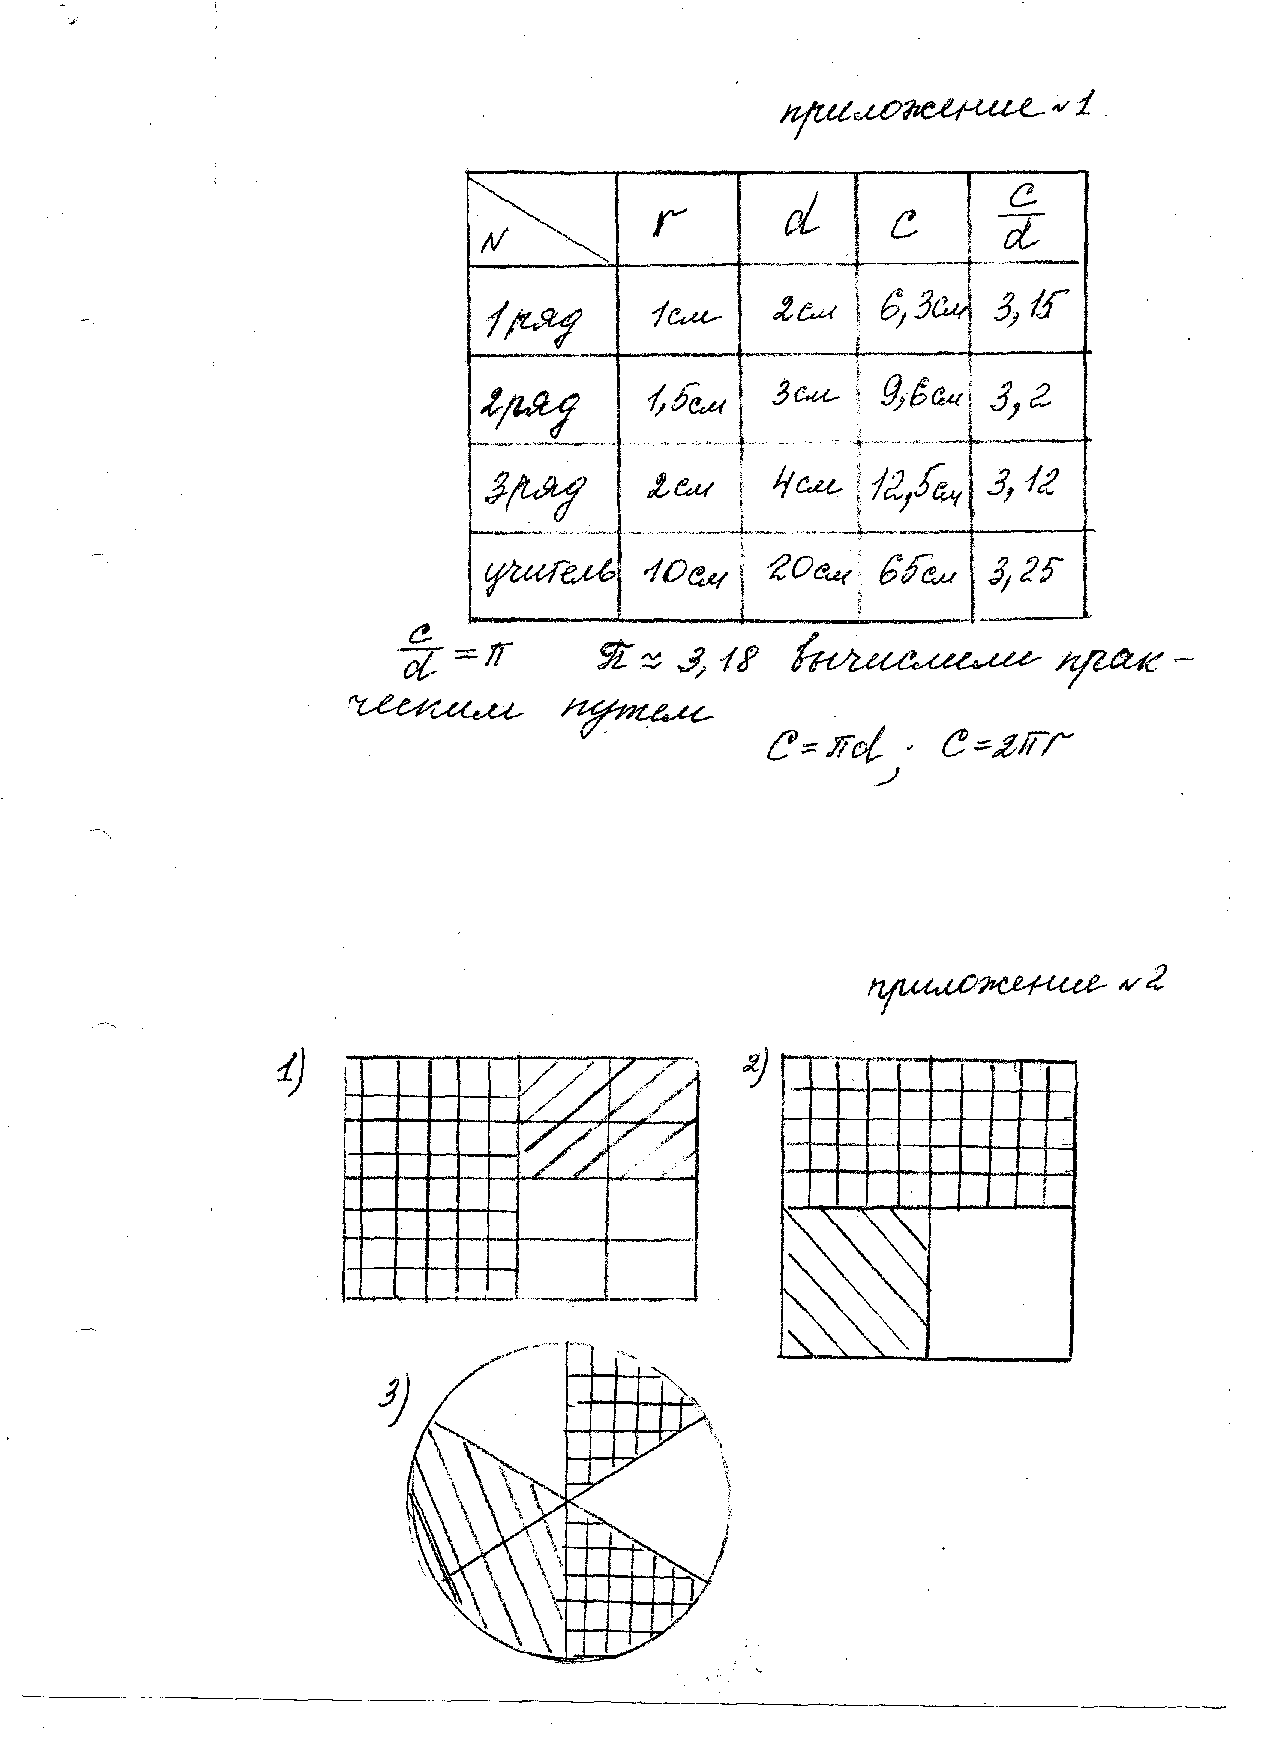 приложение №1
N r d c c/d
1 ряд 1см 2см 6,3см 3,15
2 ряд 1,5см 3см 9,6см 3,2
3 ряд 2см 4см 12,5см 3,12
учитель 10см 20см 65см 3,25
c/d = π π ≈ 3,18 вычислили прак-
ческим путем
C = πd; C = 2πr
приложение №2
1) 2)
3)